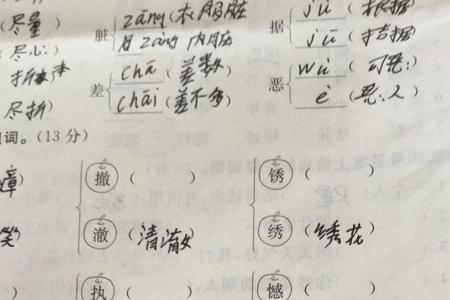 (尽量)
脏 zāng(衣服脏
据 jù(根据)
(尽心)
zàng 内脏
jū(拮据)
差 chā(差数)
恶 wù(可恶)
尽折)
chāi(差不多)
è(恶人)
词。(13分)
撤( )
锈( )
笑
澈(清澈)
绣(绣花)
)
执(
憾( )